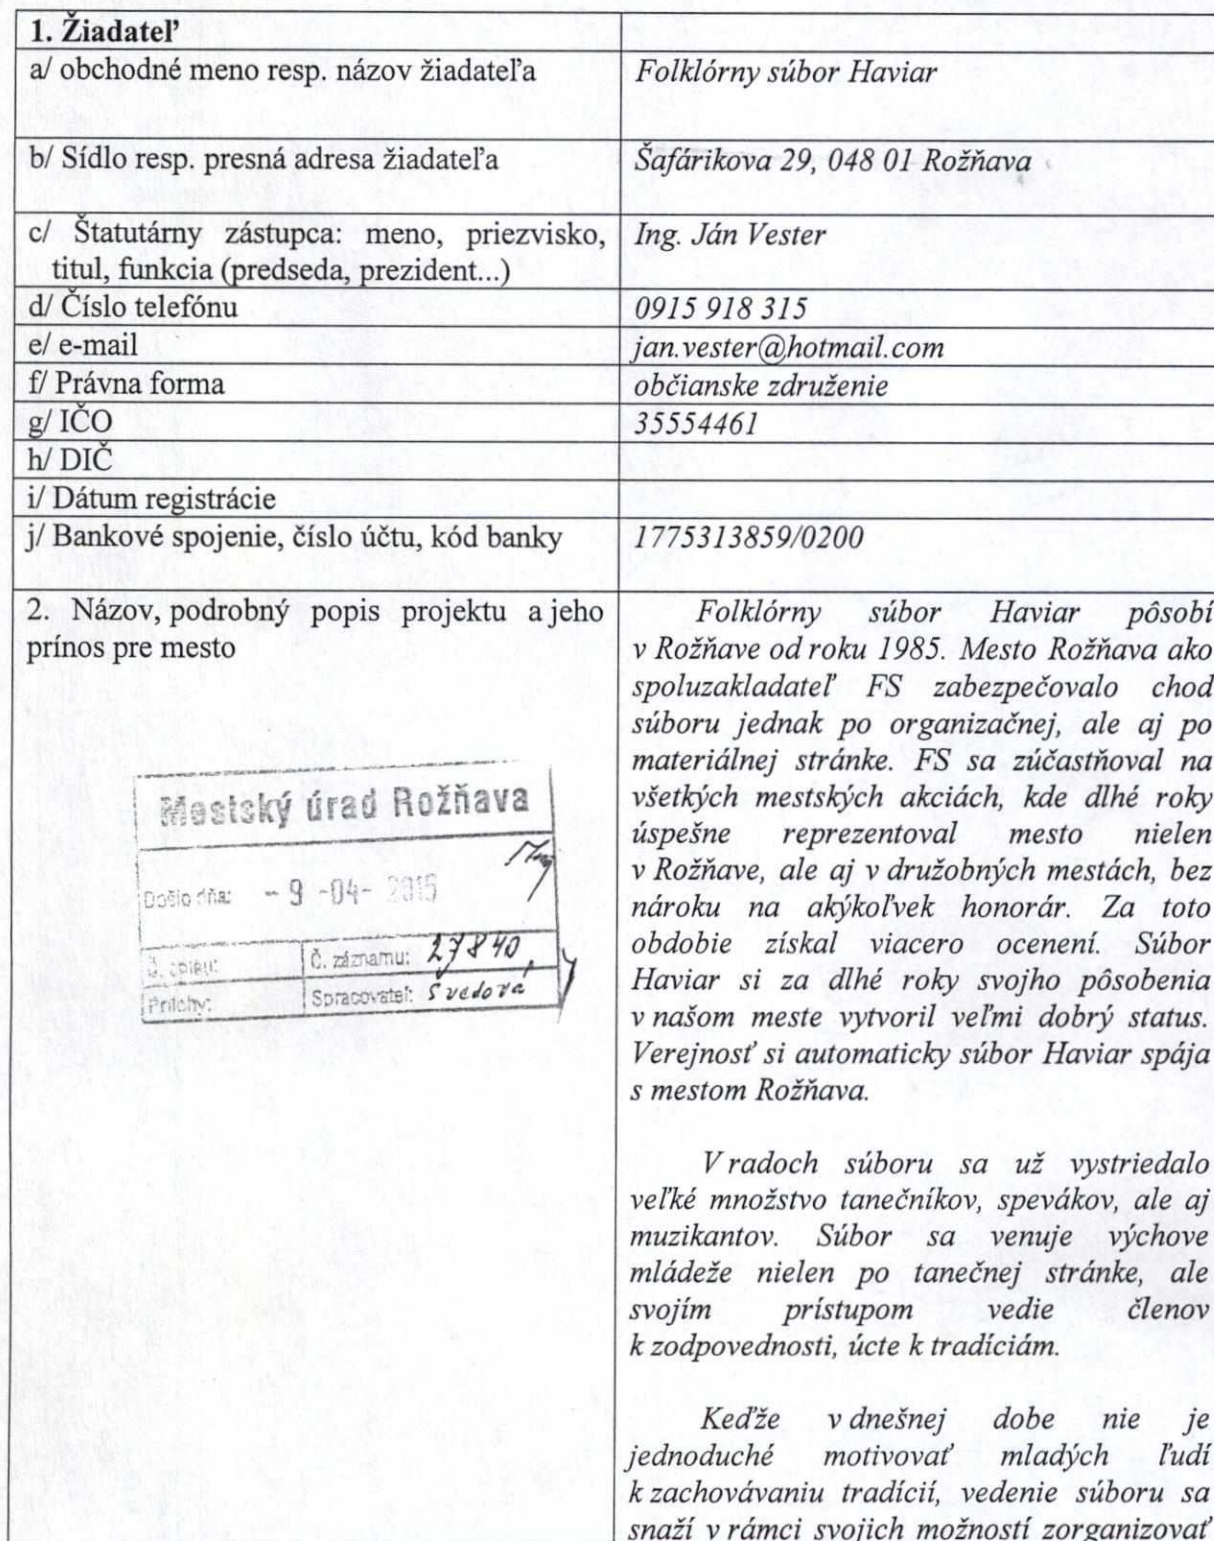 1. Žiadateľ
a/ obchodné meno resp. názov žiadateľa
Folklórny súbor Haviar
b/ Sídlo resp. presná adresa žiadateľa
Šafárikova 29, 048 01 Rožňava
c/ Štatutárny zástupca: meno, priezvisko,
titul, funkcia (predseda, prezident...)
Ing. Ján Vester
d/ Číslo telefónu
0915 918 315
e/ e-mail
jan.vester@hotmail.com
f/ Právna forma
občianske združenie
g/ IČO
35554461
h/ DIČ
i/ Dátum registrácie
j/ Bankové spojenie, číslo účtu, kód banky
1775313859/0200
2. Názov, podrobný popis projektu a jeho
prínos pre mesto
Mestský úrad Rožňava
Došlo dňa: - 9 -04- 2015
Č. spisu:
Č. záznamu: 27840
Prílohy:
Spracovateľ: Svedova
Folklórny súbor Haviar pôsobí
v Rožňave od roku 1985. Mesto Rožňava ako
spoluzakladateľ FS zabezpečovalo chod
súboru jednak po organizačnej, ale aj po
materiálnej stránke. FS sa zúčastňoval na
všetkých mestských akciách, kde dlhé roky
úspešne reprezentoval mesto nielen
v Rožňave, ale aj v družobných mestách, bez
nároku na akýkoľvek honorár. Za toto
obdobie získal viacero ocenení. Súbor
Haviar si za dlhé roky svojho pôsobenia
v našom meste vytvoril veľmi dobrý status.
Verejnosť si automaticky súbor Haviar spája
s mestom Rožňava.
V radoch súboru sa už vystriedalo
veľké množstvo tanečníkov, spevákov, ale aj
muzikantov. Súbor sa venuje výchove
mládeže nielen po tanečnej stránke, ale
svojím prístupom vedie členov
k zodpovednosti, úcte k tradíciám.
Keďže v dnešnej dobe nie je
jednoduché motivovať mladých ľudí
k zachovávaniu tradícií, vedenie súboru sa
snaží v rámci svojich možností zorganizovať